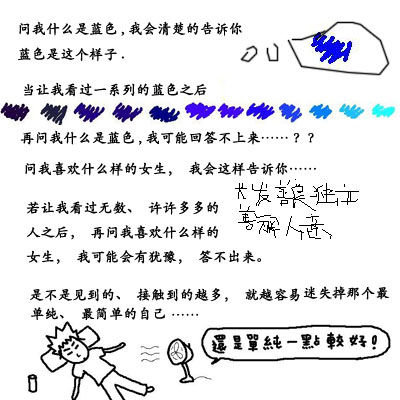 问我什么是蓝色，我会清楚的告诉你
蓝色是这个样子．
当让我看过一系列的蓝色之后
再问我什么是蓝色，我可能回答不上来……？？
问我喜欢什么样的女生， 我会这样告诉你……
长发善良独立
善解人意
若让我看过无数、 许许多多的
人之后， 再问我喜欢什么样的
女生， 我可能会有犹豫， 答不出来。
是不是见到的、 接触到的越多， 就越容易迷失掉那个最
单纯、 最简单的自己 ……
還是單純一點較好！